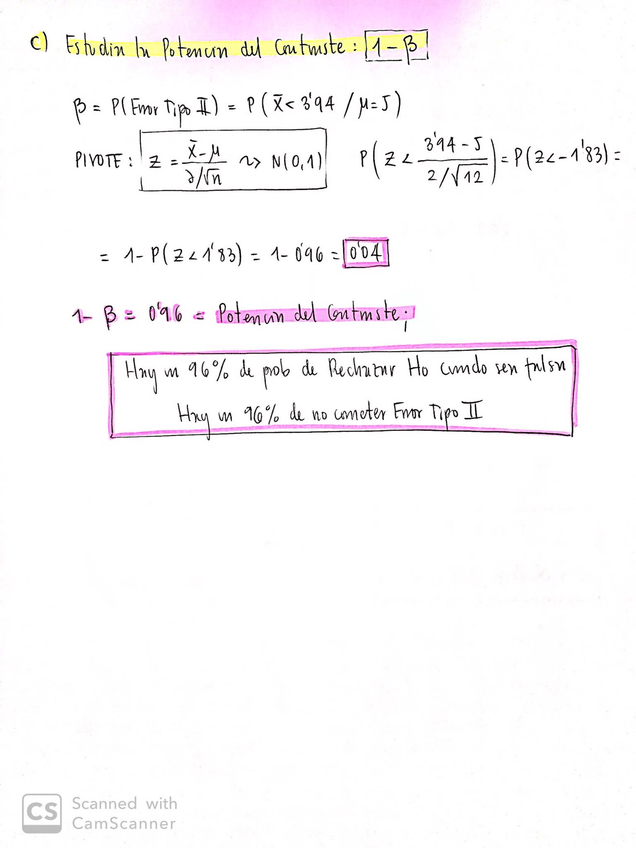 c) Estudia la Potencia del Contraste: 1-β
β = P(Error Tipo II) = P(x̄ < 3'94 / μ=5)
PIVOTE: Z = x̄-μ / σ/√n ~> N(0,1) P(Z < 3'94-5 / 2/√12) = P(Z<-1'83) =
= 1-P(Z<1'83) = 1-0'96 = 0'04
1-β = 0'96 = Potencia del Contraste;
Hay un 96% de prob de Rechazar Ho cuando sea falsa
Hay un 96% de no cometer Error Tipo II
CS Scanned with
CamScanner